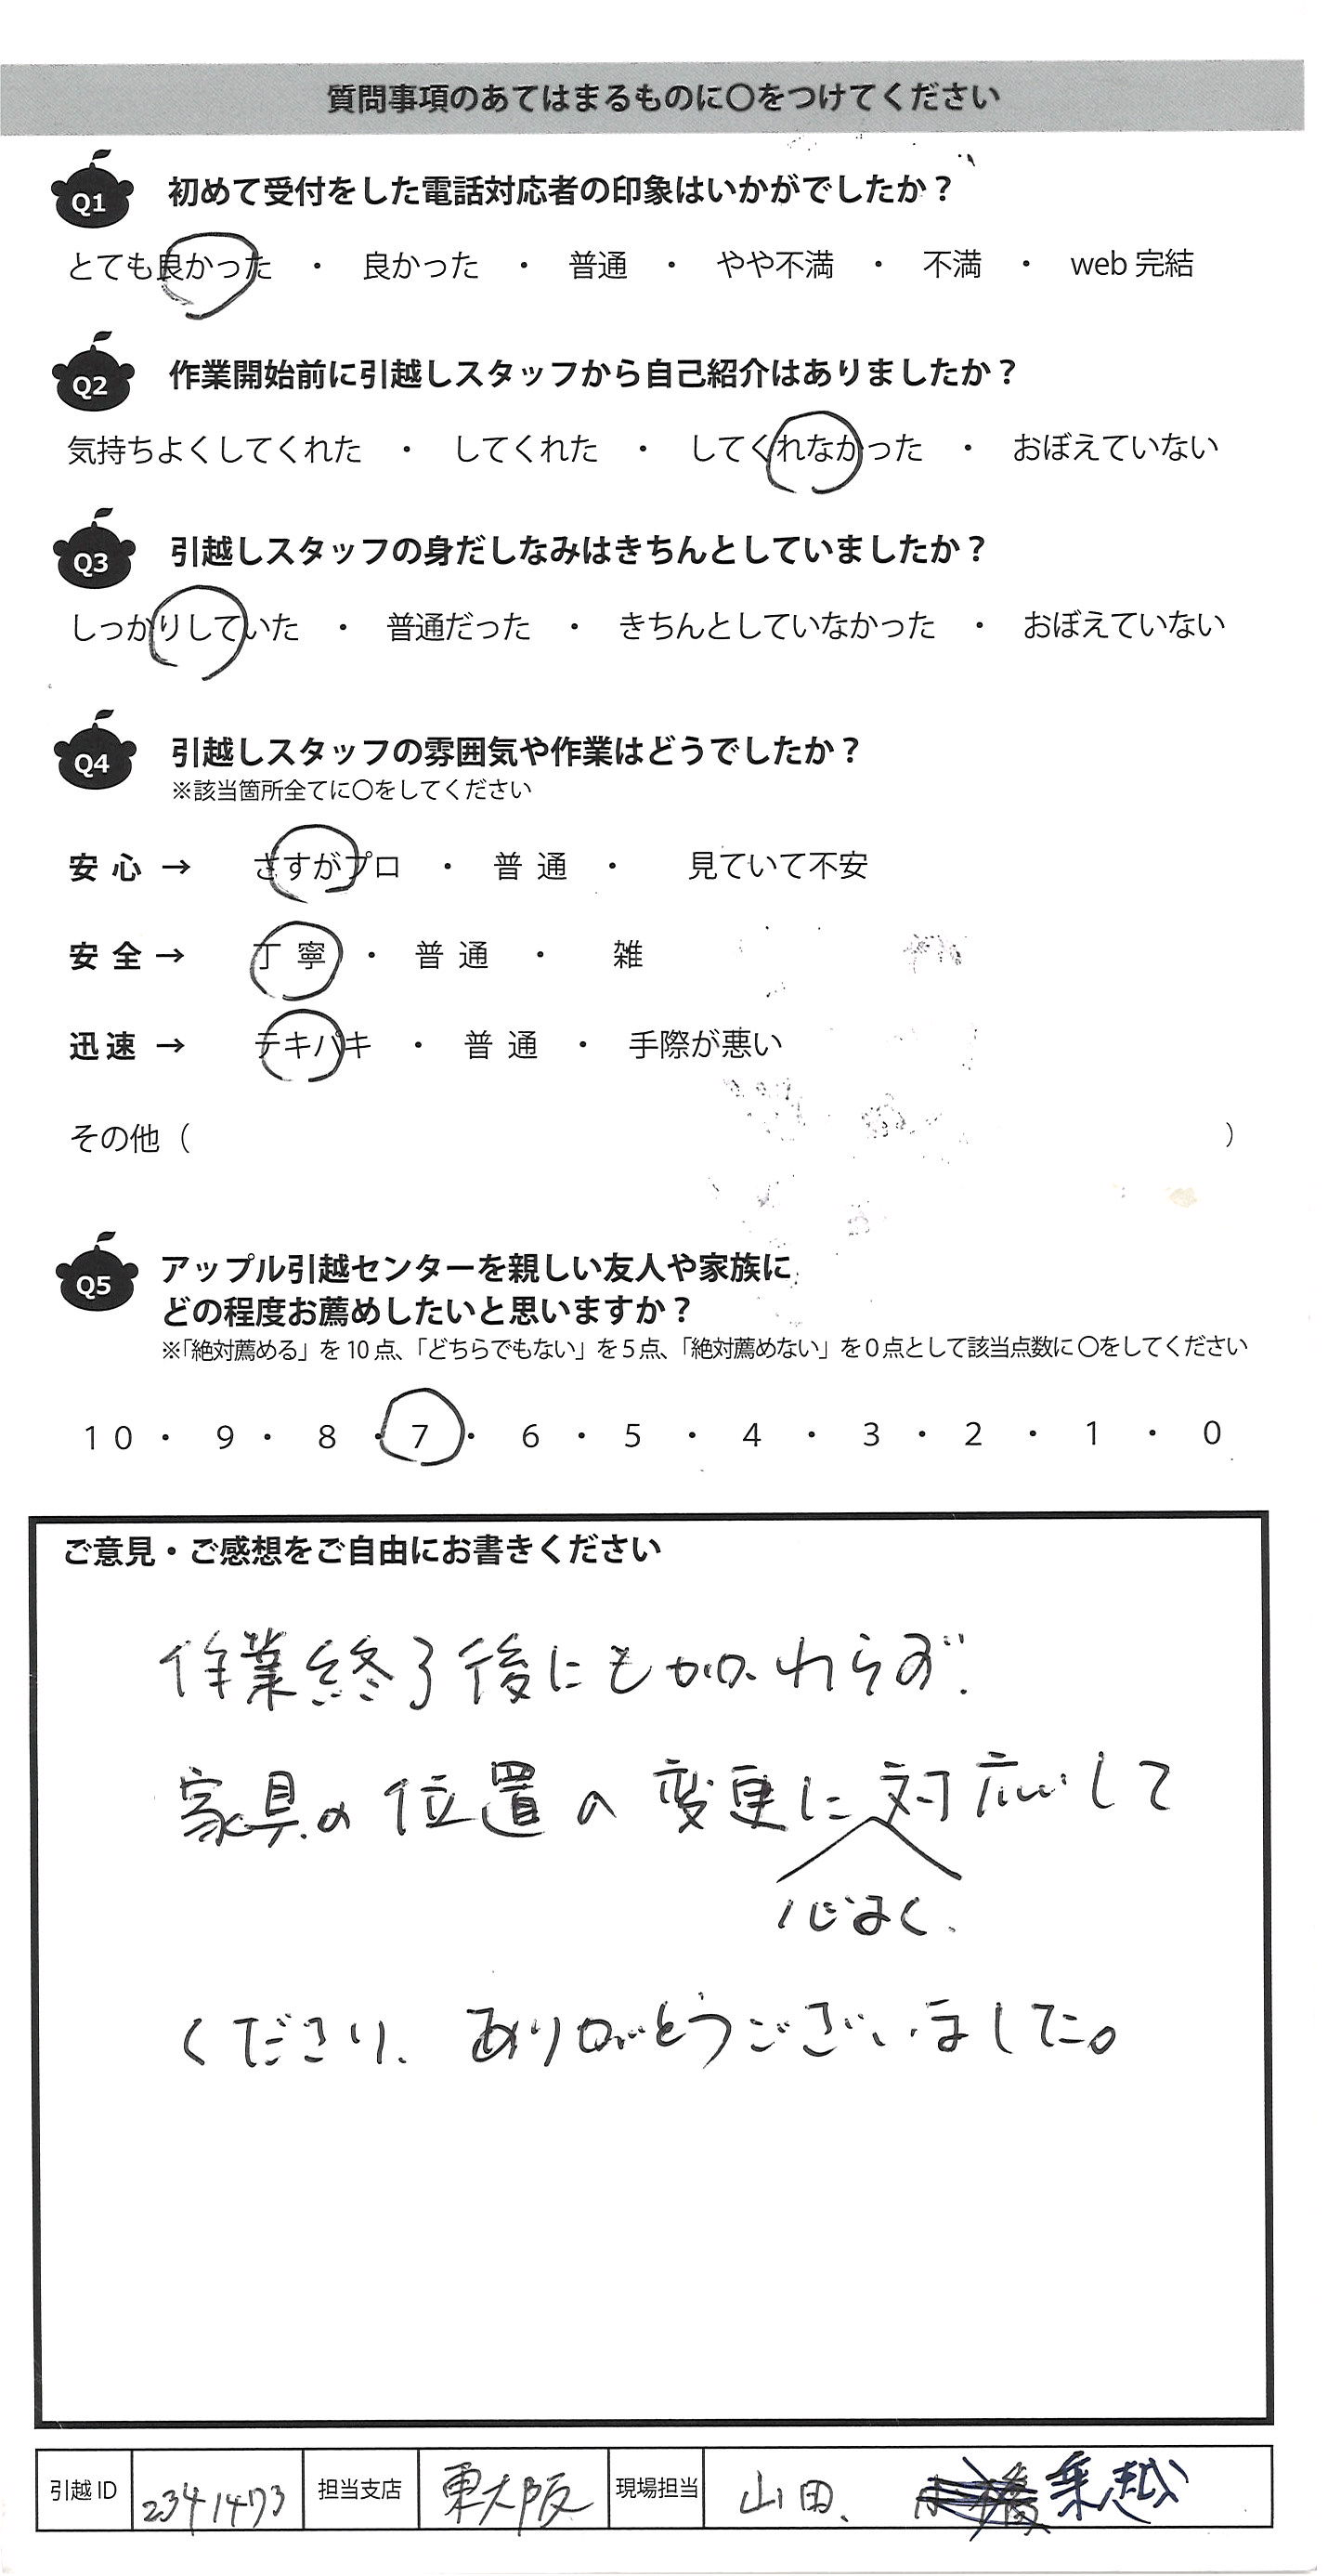 質問事項のあてはまるものに○をつけてください
Q1 初めて受付をした電話対応者の印象はいかがでしたか？
とても良かった ・ 良かった ・ 普通 ・ やや不満 ・ 不満 ・ web 完結
Q2 作業開始前に引越しスタッフから自己紹介はありましたか？
気持ちよくしてくれた ・ してくれた ・ してくれなかった ・ おぼえていない
Q3 引越しスタッフの身だしなみはきちんとしていましたか？
しっかりしていた ・ 普通だった ・ きちんとしていなかった ・ おぼえていない
Q4 引越しスタッフの雰囲気や作業はどうでしたか？
※該当箇所全てに○をしてください
安心 → さすがプロ ・ 普通 ・ 見ていて不安
安全 → 丁寧 ・ 普通 ・ 雑
迅速 → テキパキ ・ 普通 ・ 手際が悪い
その他（ ）
Q5 アップル引越センターを親しい友人や家族に
どの程度お薦めしたいと思いますか？
※「絶対薦める」を10点、「どちらでもない」を5点、「絶対薦めない」を0点として該当点数に○をしてください
10 ・ 9 ・ 8 ・ 7 ・ 6 ・ 5 ・ 4 ・ 3 ・ 2 ・ 1 ・ 0
ご意見・ご感想をご自由にお書きください
作業終了後にもかかわらず、
家具の位置の変更に対応して
心よく、
くださり、ありがとうございました。
引越ID 2341473 担当支店 東大阪 現場担当 山田、 乗越